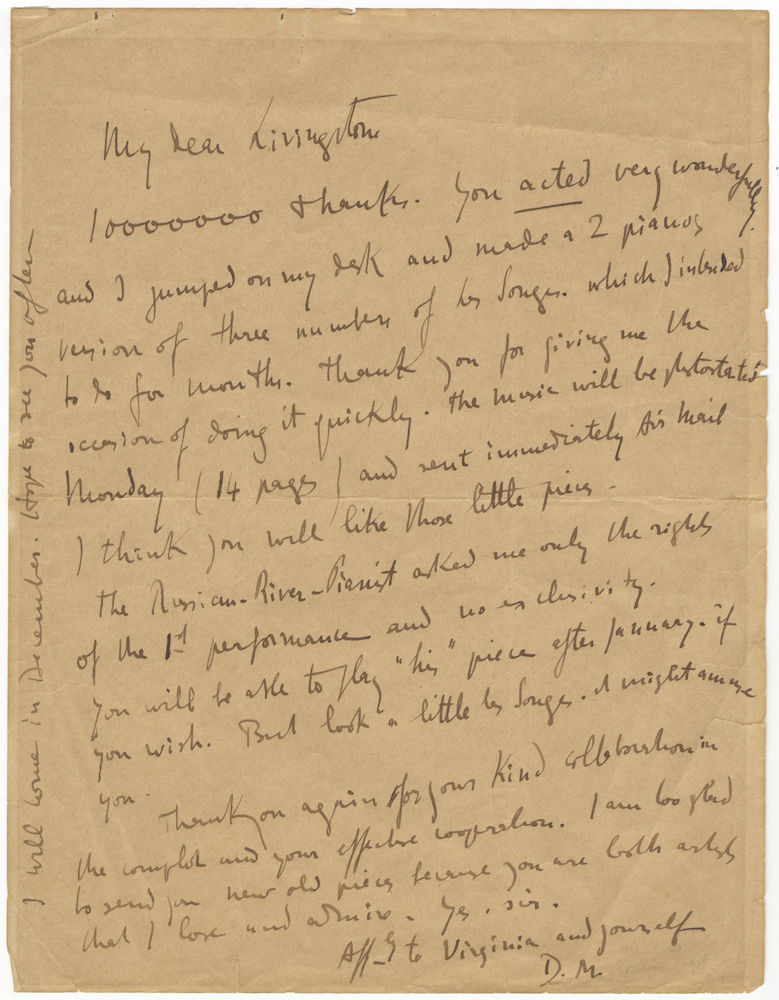 My dear Livingston
10000000 thanks. You acted very wonderfully.
and I jumped on my desk and made a 2 pianos
version of three numbers of les Songes. which I intended
to do for months. Thank you for giving me the
occasion of doing it quickly. The music will be photostated
Monday (14 pages) and sent immediately Air Mail
I think you will like those little pieces.
The Russian-River-Pianist asked me only the rights
of the 1st performance and no exclusivity.
You will be able to play "his" piece after January. if
you wish. But look a little les Songes. it might amuse
you.
Thank you again for your kind collaboration in
the complot and your effective cooperation. I am too glad
to send you new old pieces because you are both artists
that I love and admire. Yes. sir.
Aff-ly to Virginia and yourself
D. M.
I will come in December. Hope to see you often